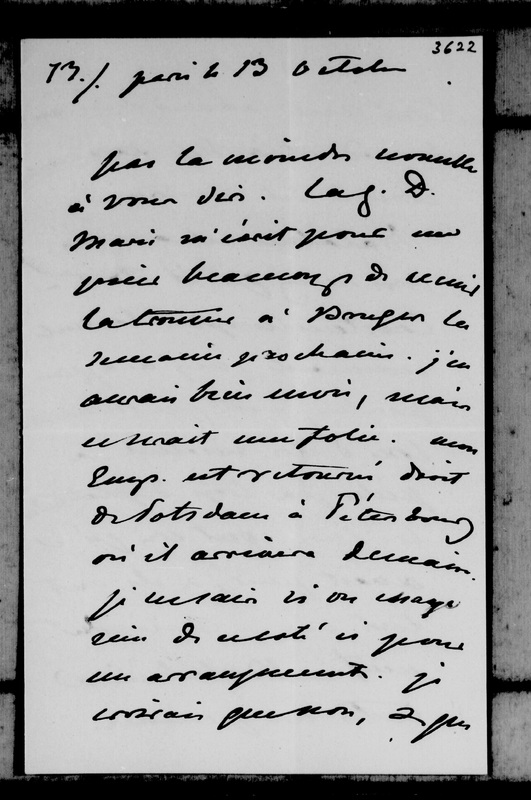 3622
73./. paris le 13 Octobre
pas la moindre nouvelle
à vous dire. la g. D.
Marie m'écrit pour me
prier beaucoup de venir
la trouver à Bruges la
semaine prochaine. j'en
aurais bien envie, mais
ce serait une folie. mon
Emp. est retourné droit
de Potsdam à Pétersbourg
où il arrivera demain.
je ne sais si on essaye
rien de ce côté ci pour
un arrangement. je
croirais que non, et que